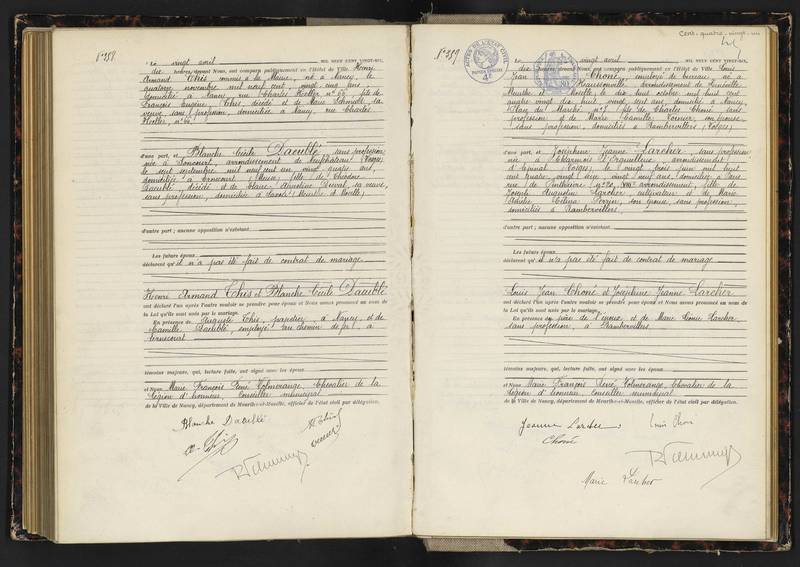 N° 358
Le vingt avril MIL NEUF CENT VINGT-SIX,
dix heures, devant Nous, ont comparu publiquement en l'Hôtel de Ville. Henry
Armand This, commis à la Mairie, né à Nancy, le
quatorze novembre mil neuf cent, vingt cinq ans,
domicilié à Nancy, rue Charles Keller, n° 66, fils de
François Eugène This, décédé et de Marie Schmidt, sa
veuve, sans profession, domiciliée à Nancy, rue Charles
Keller, n° 66
d'une part, et Blanche Cécile Daeublé, sans profession,
née à Soncourt, arrondissement de Neufchâteau (Vosges),
le sept septembre mil neuf cent un, vingt quatre ans,
domiciliée à (Meuse), fille de Théodore
Daeublé, décédé et de Marie Clémentine Duval, sa veuve,
sans profession, domiciliée à (Meurthe et Moselle),
d'autre part; aucune opposition n'existant.
Les futurs époux
déclarent qu'il n'a pas été fait de contrat de mariage
Henri Armand This et Blanche Cécile Daeublé
ont déclaré l'un après l'autre vouloir se prendre pour époux et Nous avons prononcé au nom de
la Loi qu'ils sont unis par le mariage.
En présence de Auguste This, à Nancy, et de
Camille Daeublé, employé au chemin de fer, à
témoins majeurs, qui, lecture faite, ont signé avec les époux
et Nous Marie François René Volmerange, Chevalier de la
Légion d'honneur, Conseiller municipal
de la Ville de Nancy, département de Meurthe-et-Moselle, officier de l'état civil par délégation.
Blanche Daeublé
Cent quatre vingt un
N° 359
Le vingt avril MIL NEUF CENT VINGT-SIX,
dix heures, devant Nous, ont comparu publiquement en l'Hôtel de Ville. Louis
Jean Choné, employé de bureau, né à
Haussonville, arrondissement de Lunéville
Meurthe et Moselle, le dix huit octobre mil huit cent
quatre vingt dix huit, vingt sept ans, domicilié à Nancy,
Place du Marché, n° 7, fils de Charles Choné, sans
profession et de Marie Camille Voinier, son épouse,
sans profession, domiciliés à Rambervillers (Vosges),
d'une part, et Joséphine Jeanne Larcher, sans profession
née à Charmois l'Orgueilleux, arrondissement
d'Epinal (Vosges), le vingt trois juin mil huit
cent quatre vingt seize, vingt neuf ans, domiciliée à Paris
rue de n° 20, arrondissement, fille de
Joseph Augustin Larcher cultivateur et de Marie
Célina Perrin, son épouse, sans profession,
domiciliés à Rambervillers,
d'autre part; aucune opposition n'existant.
Les futurs époux
déclarent qu'il n'a pas été fait de contrat de mariage
Louis Jean Choné et Joséphine Jeanne Larcher
ont déclaré l'un après l'autre vouloir se prendre pour époux et Nous avons prononcé au nom de
la Loi qu'ils sont unis par le mariage.
En présence du père de l'époux et de Marie Louise Larcher,
sans profession, à Rambervillers
témoins majeurs, qui, lecture faite, ont signé avec les époux
et Nous Marie François René Volmerange, Chevalier de la
Légion d'honneur, Conseiller municipal
de la Ville de Nancy, département de Meurthe-et-Moselle, officier de l'état civil par délégation.
Jeanne Larcher Louis Choné
Choné
Marie Larcher